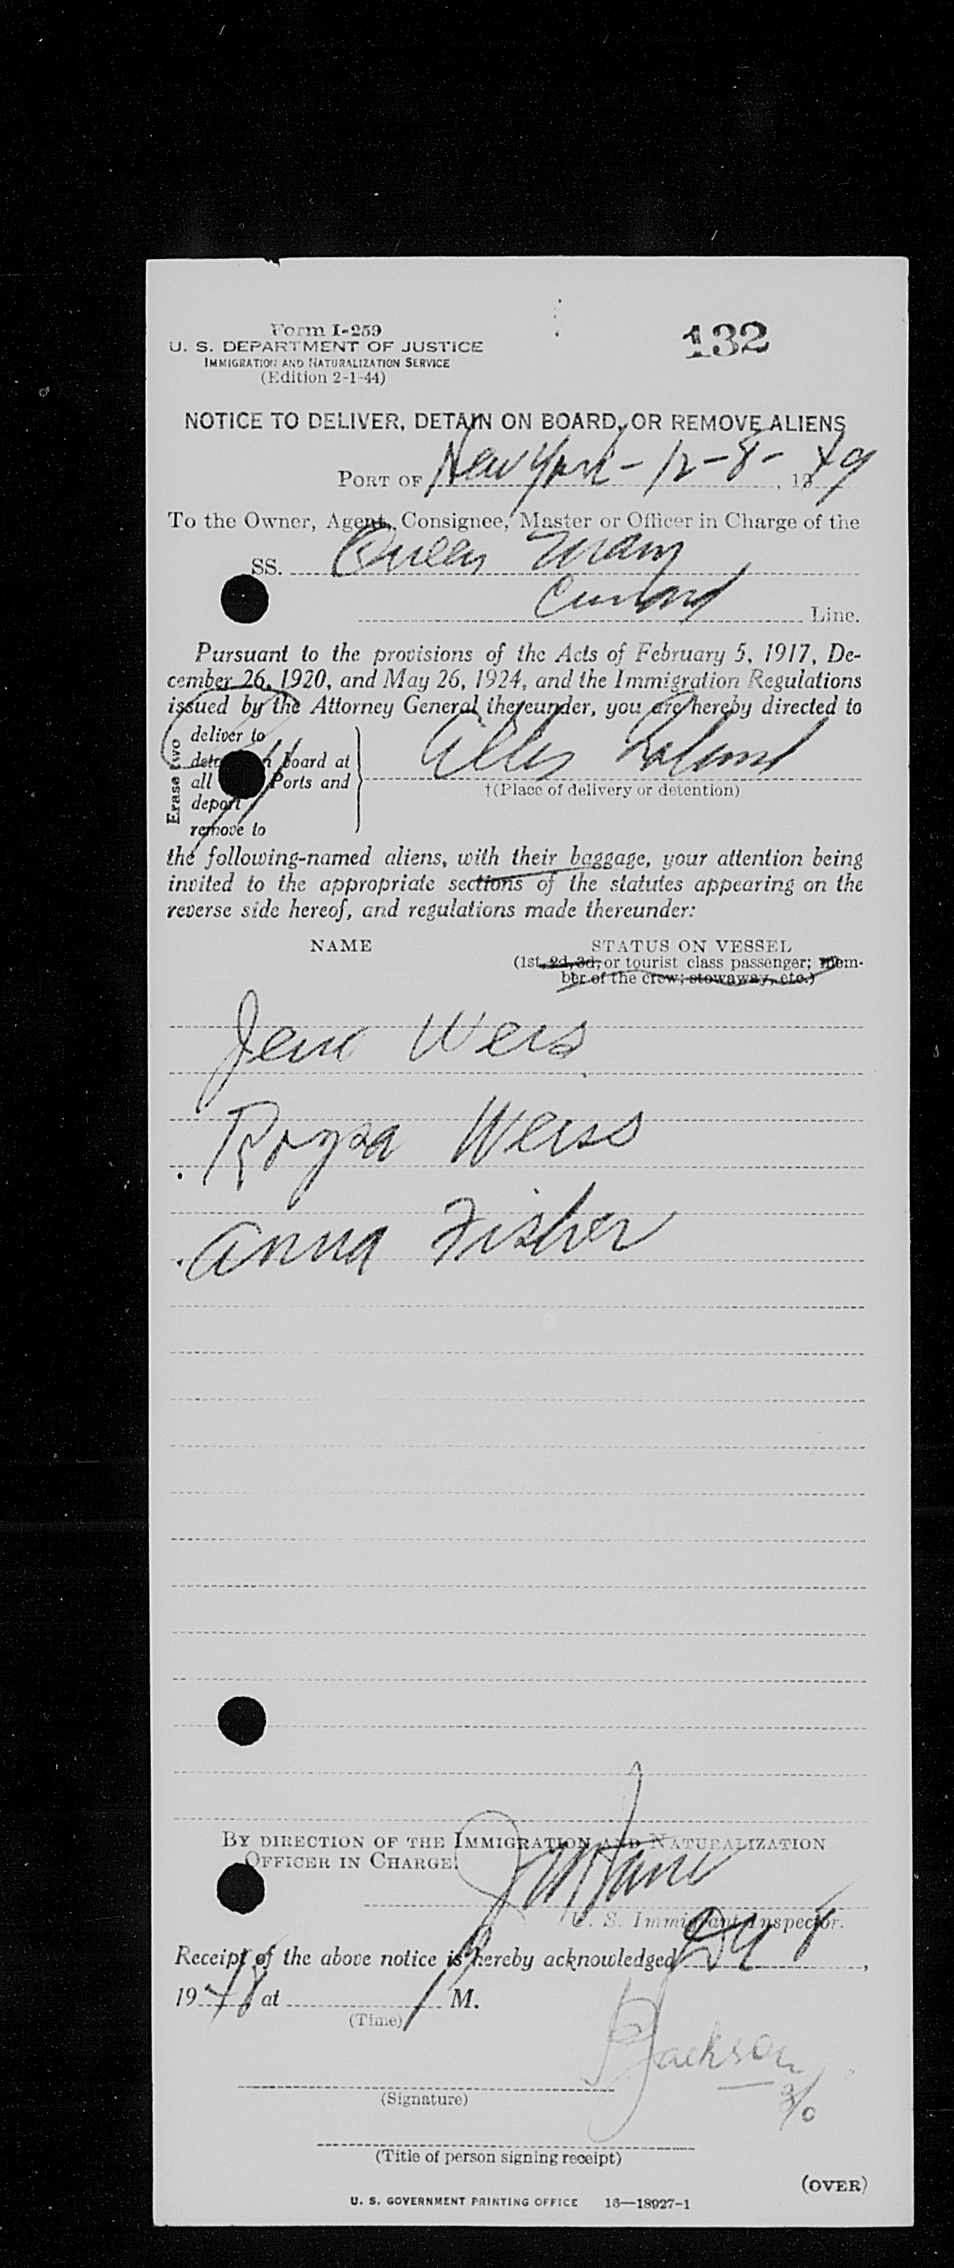 Form I-259
132
U. S. DEPARTMENT OF JUSTICE
IMMIGRATION AND NATURALIZATION SERVICE
(Edition 2-1-44)
NOTICE TO DELIVER, DETAIN ON BOARD, OR REMOVE ALIENS
PORT OF New York - 12-8-, 1949
To the Owner, Agent, Consignee, Master or Officer in Charge of the
SS. Queen Mary
Cunard Line.
Pursuant to the provisions of the Acts of February 5, 1917, De-
cember 26, 1920, and May 26, 1924, and the Immigration Regulations
issued by the Attorney General thereunder, you are hereby directed to
Erase two
deliver to
board at
all Ports and
deport
remove to
Ellis Island
†(Place of delivery or detention)
the following-named aliens, with their baggage, your attention being
invited to the appropriate sections of the statutes appearing on the
reverse side hereof, and regulations made thereunder:
NAME STATUS ON VESSEL
(1st, 2d, 3d, or tourist class passenger; mem-
ber of the crew; stowaway, etc.)
Jeno Weis
Rozsa Weiss
Anna Fisher
BY DIRECTION OF THE IMMIGRATION AND NATURALIZATION
OFFICER IN CHARGE:
U. S. Immigrant Inspector.
Receipt of the above notice is hereby acknowledged 8,
19 at M.
(Time)
Jackson
(Signature)
(Title of person signing receipt)
(OVER)
U. S. GOVERNMENT PRINTING OFFICE 16—18927-1